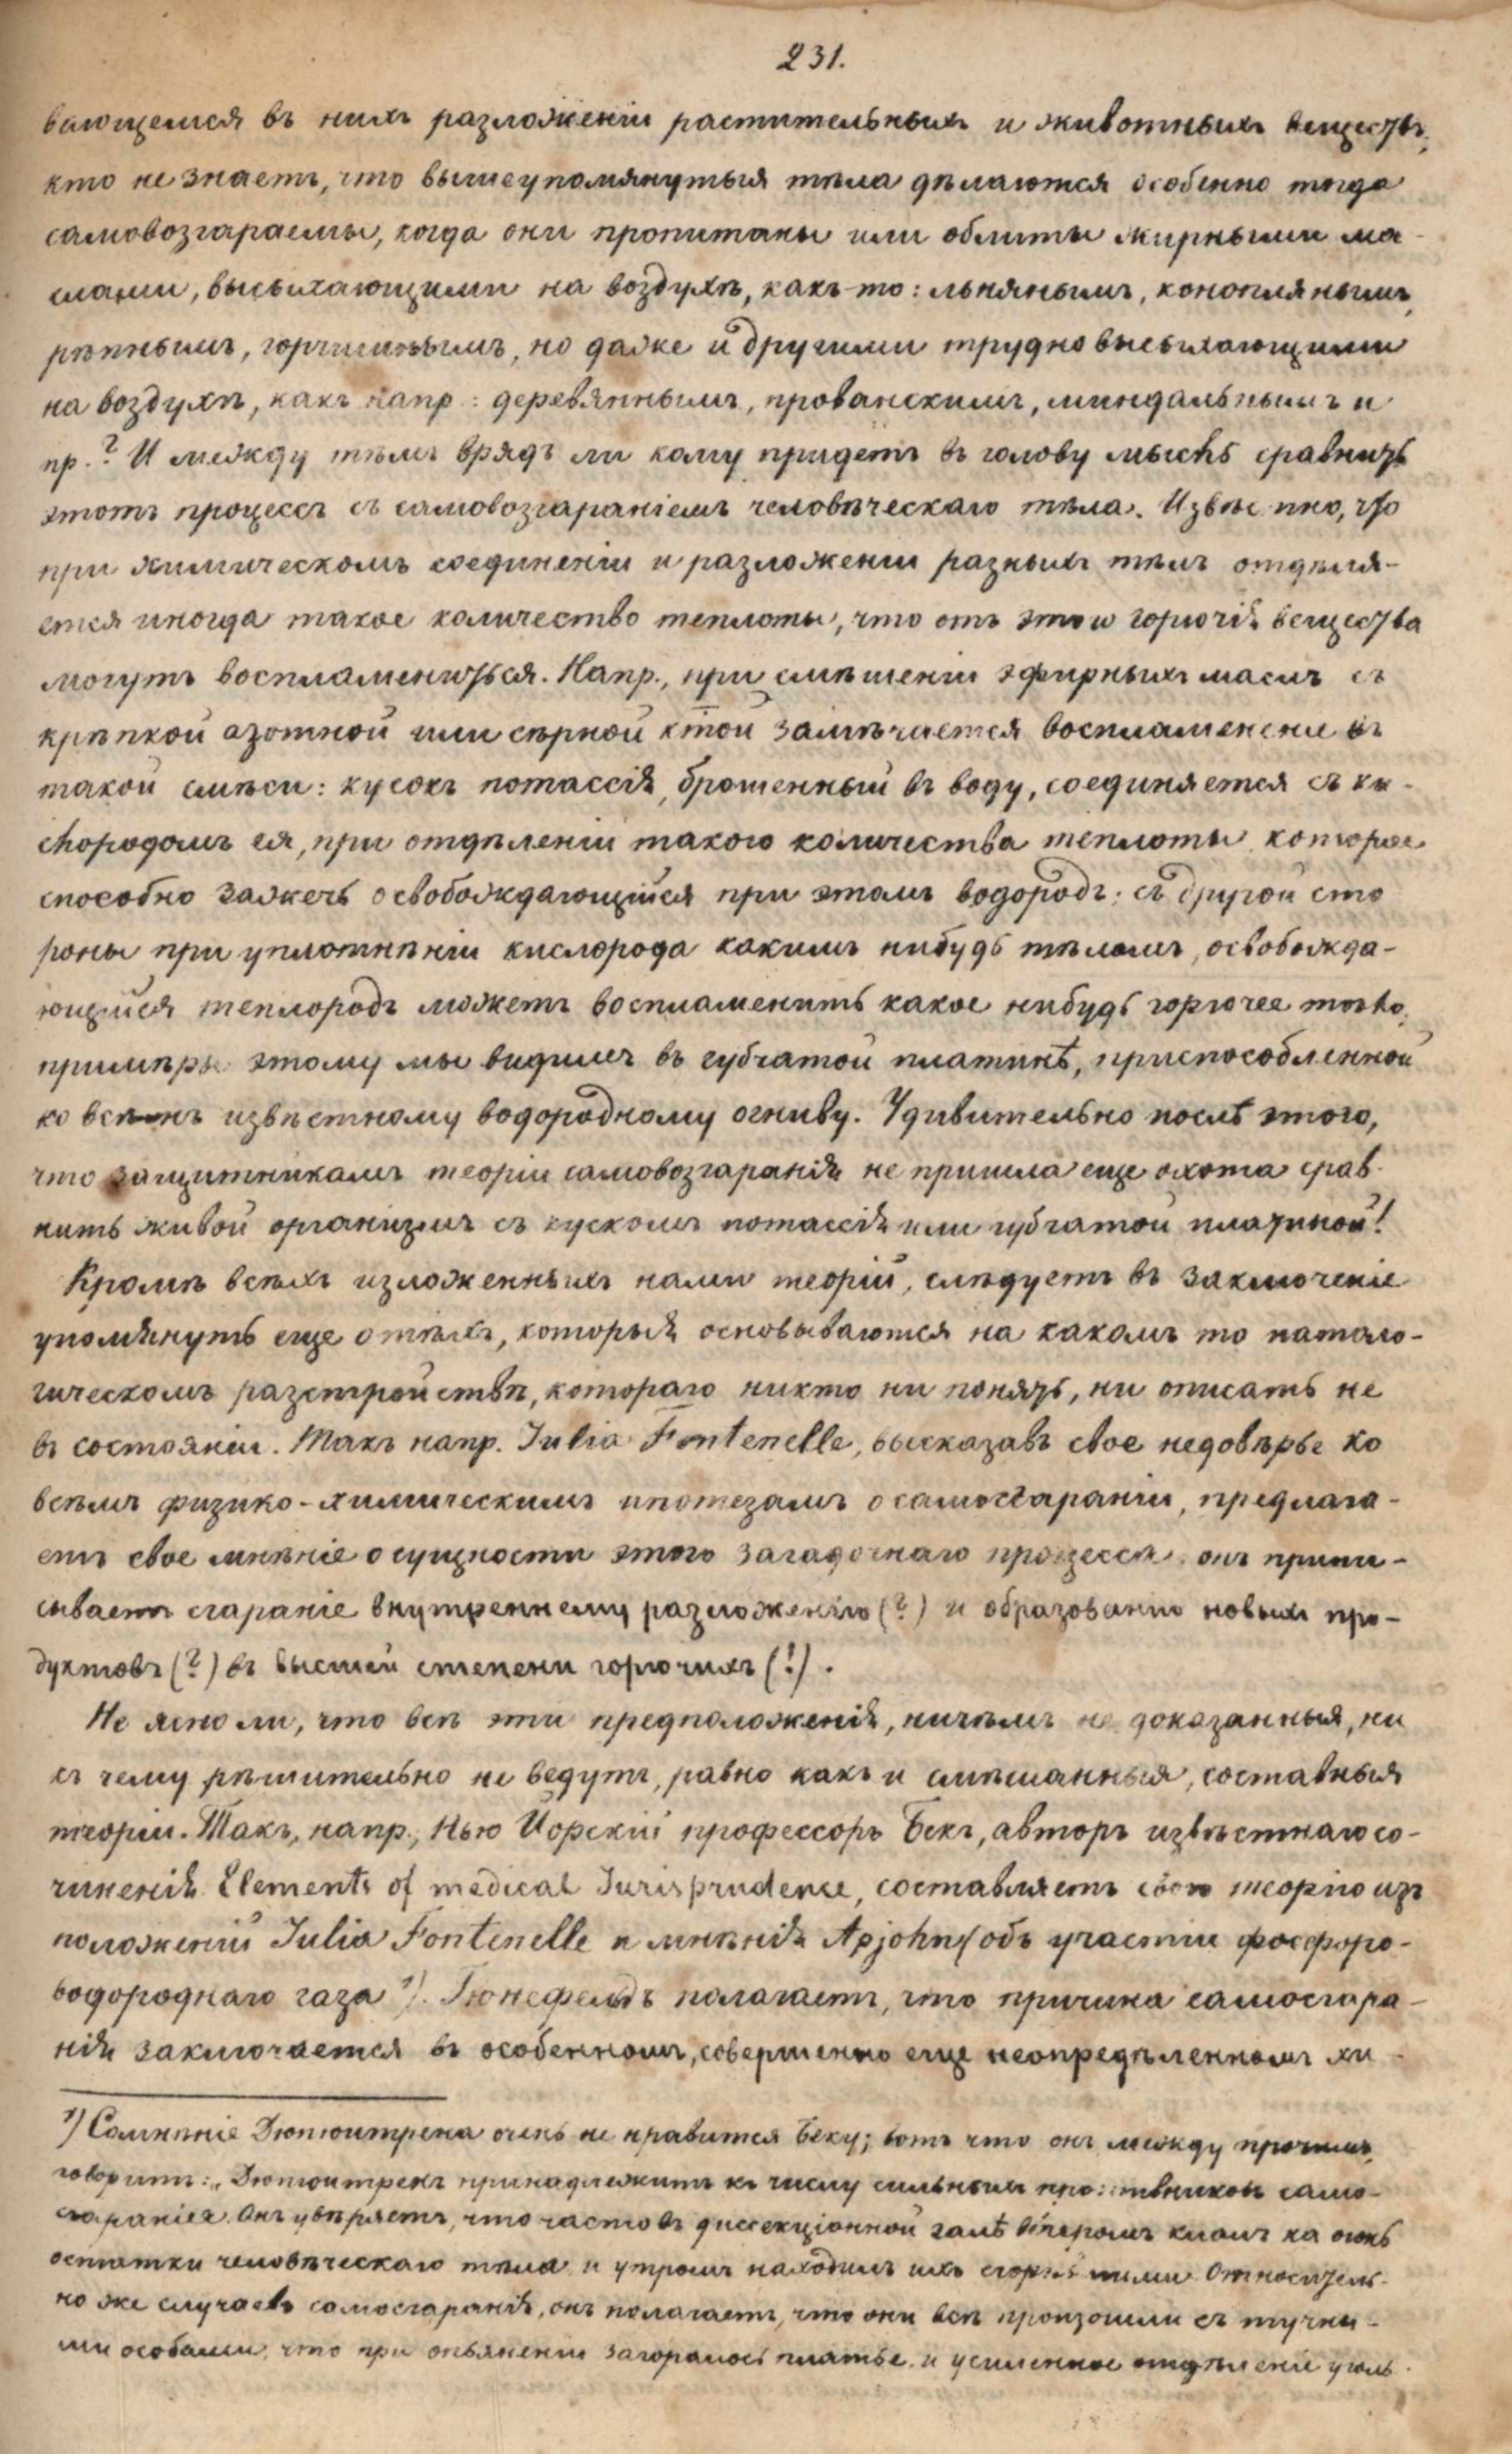 231.
вающемся въ нихъ разложеніи растительныхъ и животныхъ веществъ,
кто не знаетъ, что вышеупомянутыя тѣла дѣлаются особенно тогда
самовозгараемы, когда они пропитаны или облиты жирными ма-
слами, высыхающими на воздухѣ, какъ-то: льнянымъ, конопляннымъ,
рѣпнымъ, горчишнымъ, но даже и другими трудно высыхающими
на воздухѣ, какъ напр.: деревяннымъ, прованскимъ, миндальнымъ и
пр.? И между тѣмъ врядъ ли кому придетъ въ голову мысль сравнить
этотъ процессъ съ самовозгараніемъ человѣческаго тѣла. Извѣстно, что
при химическомъ соединеніи и разложеніи разныхъ тѣлъ отдѣля-
ется иногда такое количество теплоты, что отъ этого горючія вещества
могутъ воспламениться. Напр., при смѣшеніи эфирныхъ маслъ съ
крѣпкой азотной или сѣрной ктой замѣчается воспламененіе въ
такой смѣси: кусокъ потассія, брошенный въ воду, соединяется съ ки-
слородомъ ея, при отдѣленіи такого количества теплоты, которое
способно зажечь освобождающійся при этомъ водородъ; съ другой сто
роны при уплотнѣніи кислорода какимъ нибудь тѣломъ, освобожда-
ющійся теплородъ можетъ воспламенить какое нибудь горючее тѣло;
примѣръ этому мы видимъ въ губчатой платинѣ, приспособленной
ко всѣмъ извѣстному водородному огниву. Удивительно послѣ этого,
что защитникамъ теоріи самовозгаранія не пришла еще охота срав-
нить живой организмъ съ кускомъ потассія или губчатой платиной!
Кромѣ всѣхъ изложенныхъ нами теорій, слѣдуетъ въ заключеніе
упомянуть еще о тѣхъ, которыя основываются на какомъ то патоло-
гическомъ разстройствѣ, котораго никто ни понять, ни описать не
въ состояніи. Такъ напр. Julia Fontenelle, высказавъ свое недовѣрье ко
всѣмъ физико-химическимъ ипотезамъ о самосгараніи, предлага-
етъ свое мнѣніе о сущности этого загадочнаго процесса: онъ припи-
сываетъ сгараніе внутреннему разложенію (?) и образованію новыхъ про-
дуктовъ (?) въ высшей степени горючихъ (!).
Не ясно ли, что всѣ эти предположенія, ничѣмъ не доказанныя, ни
къ чему рѣшительно не ведутъ, равно какъ и смѣшанныя, составныя
теоріи. Такъ, напр., Нью Йорскій профессоръ Бекъ, авторъ извѣстнаго со-
чиненія Elements of medical Jurisprudence, составляетъ свою теорію изъ
положеній Julia Fontenelle и мнѣнія Apjohn (объ участіи фосфоро-
водороднаго газа ¹). Гюнефельдъ полагаетъ, что причина самосгара-
нія заключается въ особенномъ, совершенно еще неопредѣленномъ хи-
¹) Сомнѣніе Дюпюитрена очень не нравится Беку; вотъ что онъ между прочимъ
говоритъ: „Дюпюитренъ принадлежитъ къ числу сильныхъ противниковъ само-
сгаранія. Онъ увѣряетъ, что часто въ диссекціонной залѣ вечеромъ клалъ на огонь
остатки человѣческаго тѣла и утромъ находилъ ихъ сгорѣвшими. Относитель-
но же случаевъ самосгаранія, онъ полагаетъ, что они всѣ произошли съ тучны-
ми особами, что при опьяненіи загоралось платье, и усиленное отдѣленіе уголь-